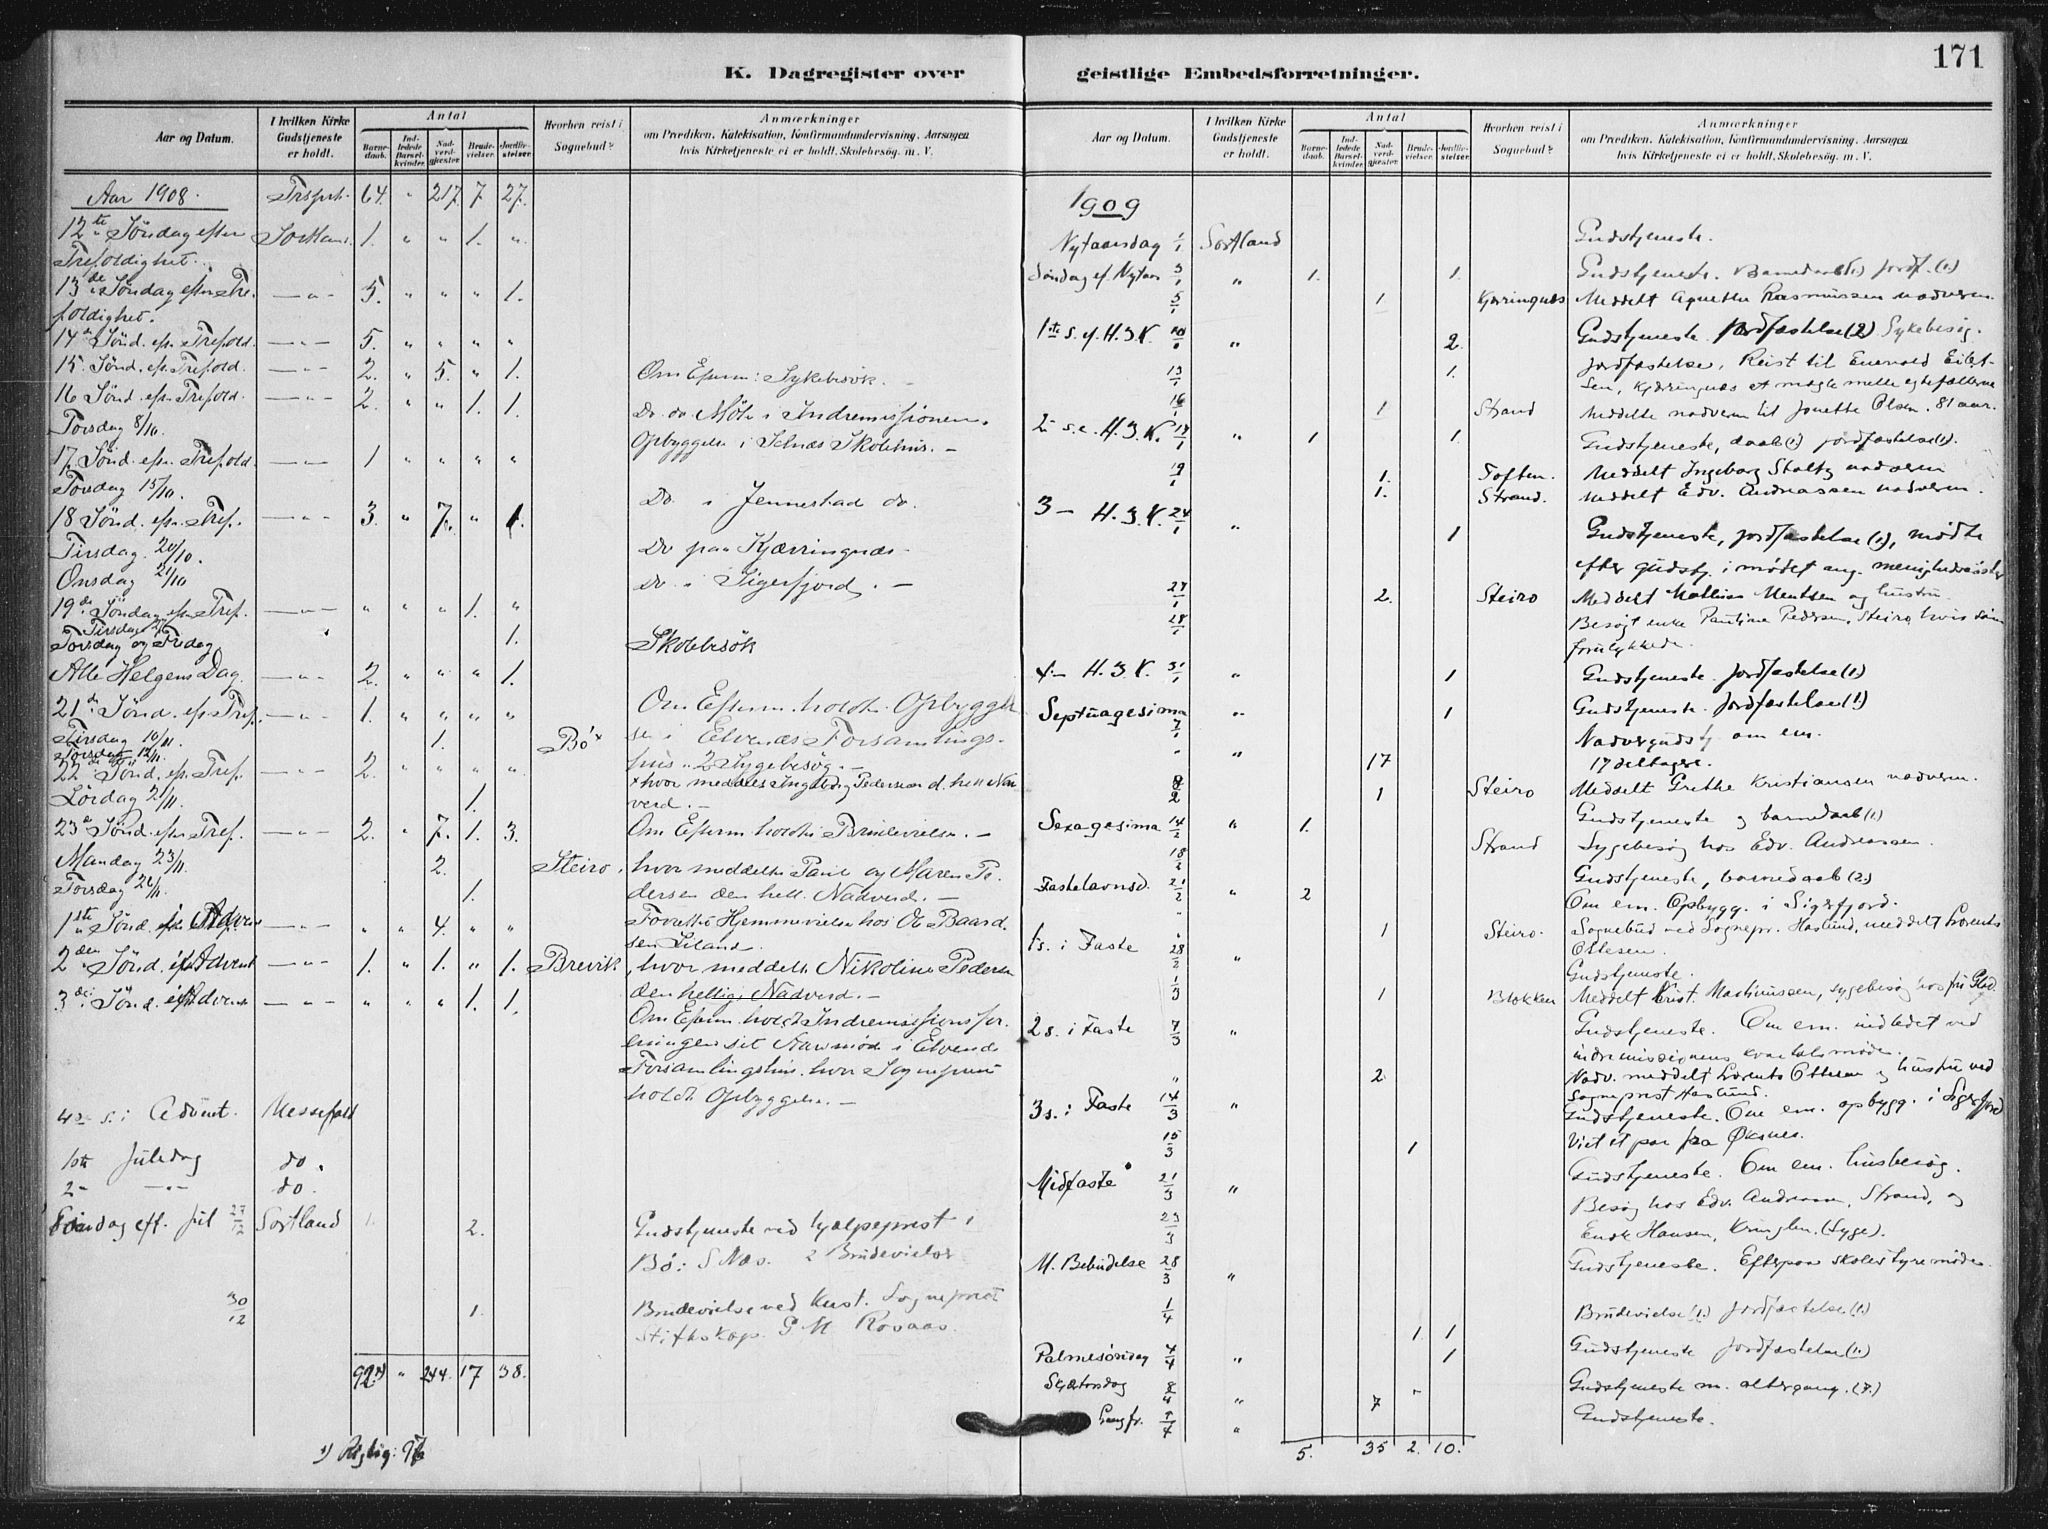 171
K. Dagregister over geistlige Embedsforretninger.
Aar og Datum. I hvilken Kirke Gudstjeneste er holdt. Antal Barnedaab. Indledede Barselkvinder. Nadverdgjester. Brudevielser. Jordfæstelser. Hvorhen reist i Sognebud? Anmærkninger om Prædiken, Katekisation, Konfirmandundervisning, Aarsagen hvis Kirketjeneste ei er holdt, Skolebesøg m. V.
Aar 1908. Trsprt. 64. " 217. 7 27.
12te Söndag efter Sortland. 1. " " 1. "
Trefoldighet.
13de Söndag efter Tre- —"— 5. " " " 1.
foldighet.
14de Sönd. efr. Trefold. —"— 5. " " "
15. Sönd. efr. Trefold. —"— 2. " 5. " 1. Om Efterm: Sykebesök. —
16 Sönd. efr. Trefold. —"— 2. " " 1. 1. Do. do Möte i Indremissionen.
Torsdag 8/10. Opbyggelse i Selnæs Skolehus. —
17. Sönd. efr. Trefold. —"— 1 " " " "
Torsdag 15/10. Do i Jennestad do.
18 Sönd. efr. Tref. —"— 3. " 7. " 1.
Tirsdag 20/10. Do paa Kjærringnæs
Onsdag 21/10 Do i Sigerfjord. —
19de Söndag efr. Tref. —"— " " " 1. "
Tirsdag 1.
Torsdag og Fredag Skolebesök
Alle Helgens Dag. —"— 2. " " " 1.
21de Sönd. efr. Tref. —"— 1. " " " " Om Efterm. holdt Opbyggel
Tirsdag 10/11. 1. Bö x se i Elvenæs Forsamlings-
Torsdag 12/11. hus. 2 Sygebesög. —
22de Sönd. efr. Tref. —"— 2. " " " " x hvor meddeltes Pedersen d. hell. Nad
Lördag 21/11. 1. verd. —
23de Sönd. efr. Tref. —"— 2. " 7. 1. 3. Om Efterm. holdt Brudevielse. —
Mandag 23/11. 2. Steiro. hvor meddeltes Paul og Maren Pe-
Torsdag 26/11. 1. dersen den hell. Nadverd. —
1ste Sönd. i Advent —"— " " 4. " " Forrettet Hjemmevielse hos O. Baard-
sen Liland.
2den Sönd. i Advent —"— 1. " 1. " 1. Brevik, hvor meddelt Nikoline Pedersen
den hellige Nadverd. —
3de Sönd. i Advent —"— " " " 1. 1. Om Efterm. holdt Indremissionsfor-
eningen sit Aarsmöde i Elvenæs
Forsamlingshus. hvor Sogneprest
holdt Opbyggelse. —
4de s. i Advent. Messefald
1ste Juledag do.
2- —"— do.
Söndag eft. Jul 27/12 Sortland 1. 2. Gudstjeneste ved hjælpeprest i
Bö: S Næs. 2 Brudevielser
30/12 1. Brudevielse ved Kst. Sogneprest
Stiftskap. G M Rosaas.
92.1) " 244. 17 38.
1) Rigtig: 97
Aar og Datum. I hvilken Kirke Gudstjeneste er holdt. Antal Barnedaab. Indledede Barselkvinder. Nadverdgjester. Brudevielser. Jordfæstelser. Hvorhen reist i Sognebud? Anmærkninger om Prædiken, Katekisation, Konfirmandundervisning, Aarsagen hvis Kirketjeneste ei er holdt, Skolebesøg m. V.
1909
Nytaarsdag 1/1 Sortland Gudstjeneste.
Søndag ef. Nytaar 3/1 " 1. 1. Gudstjeneste. Barnedaab (1) Jordf. (1)
5/1 1. Kjærringnæs Meddelt Agnethe Rasmussen nadveren.
1ste s. ef. H.3.K. 10/1 " 2. Gudstjeneste Jordfæstelse (2) Sykebesög.
13/1 1. Jordfæstelse. Reist til Enevold Eilert-
sen, Kjærringnæs at mægle melle egtefællerne
16/1 1 Strand Meddelte nadveren til Jonette Olsen. 81 aar.
2- s.e. H.3.K. 17/1 " 1 1. Gudstjeneste, daab (1) Jordfæstelse (1).
19/1 1. Toften. Meddelt Ingeborg Stoltz nadveren
1. Strand. Meddelt Edv. Andreassen nadveren.
3 — H.3.K. 24/1 " 1 Gudstjeneste, Jordfæstelse (1), mødte
efter gudstj. i mødet ang. menighedssøster
27/1 2. Steiro Meddelt Mathias Mentsen og hustru.
28/1 Besøgt enke Pauline Pedersen, Steiro, hvis søn
forulykkede.
4— H.3.K. 31/1 " 1 Gudstjeneste. Jordfæstelse (1)
Septuagesima 7/ " 1 Gudstjeneste. Jordfæstelse (1)
Nadvergudstj om em.
" " 17 17 deltagere.
8/2 1 Steiro Meddelt Grethe Kristiansen nadveren.
Sexagesima 14/2 " 1. Gudstjeneste og barnedaab (1)
18/2 Strand Sygebesøg hos Edv. Andreassen.
Fastelavnsd. 21/2 " 2 Gudstjeneste, barnedaab (2)
" Om em. Opbygg. i Sigerfjord.
" 1 Steiro. Sognebud ved Sognepr. Haslund, meddelt Lorents
Ottesen.
1s. i Faste 28/2 " Gudstjeneste.
1/3 1 Blokken Meddelt Krist. Martinussen, sygebesøg hos fru Glad.
2 s. i Faste 7/3 " Gudstjeneste. Om em. indledet ved
indremissionens kvartalsmøde.
" 2 Nadv. meddelt Lorents Ottesen og hustru ved
Sogneprest Haslund.
3 s. i Faste 14/3 " Gudstjeneste. Om em. opbygg. i Sigerfjord
15/3 1 Viet et par fra Øksnes.
Midfaste 21/3 " Gudstjeneste. Om em. husbesøg.
23/3 Besøg hos Edv. Andreassen, Strand, og
Enok Hansen, Kringlen. (Syge).
M. Bebudelse 28/3 " Gudstjeneste. Efterpaa skolestyremøde.
1/4 1. 1 Brudevielse (1.) Jordfæstelse (1.)
Palmesøndag 4/4 " 1 Gudstjeneste Jordfæstelse (1.)
Skjærtorsdag 8/4 " 7 Gudstjeneste m. altergang. (7.)
Langfr. " Gudstjeneste.
5. 35 2. 10.